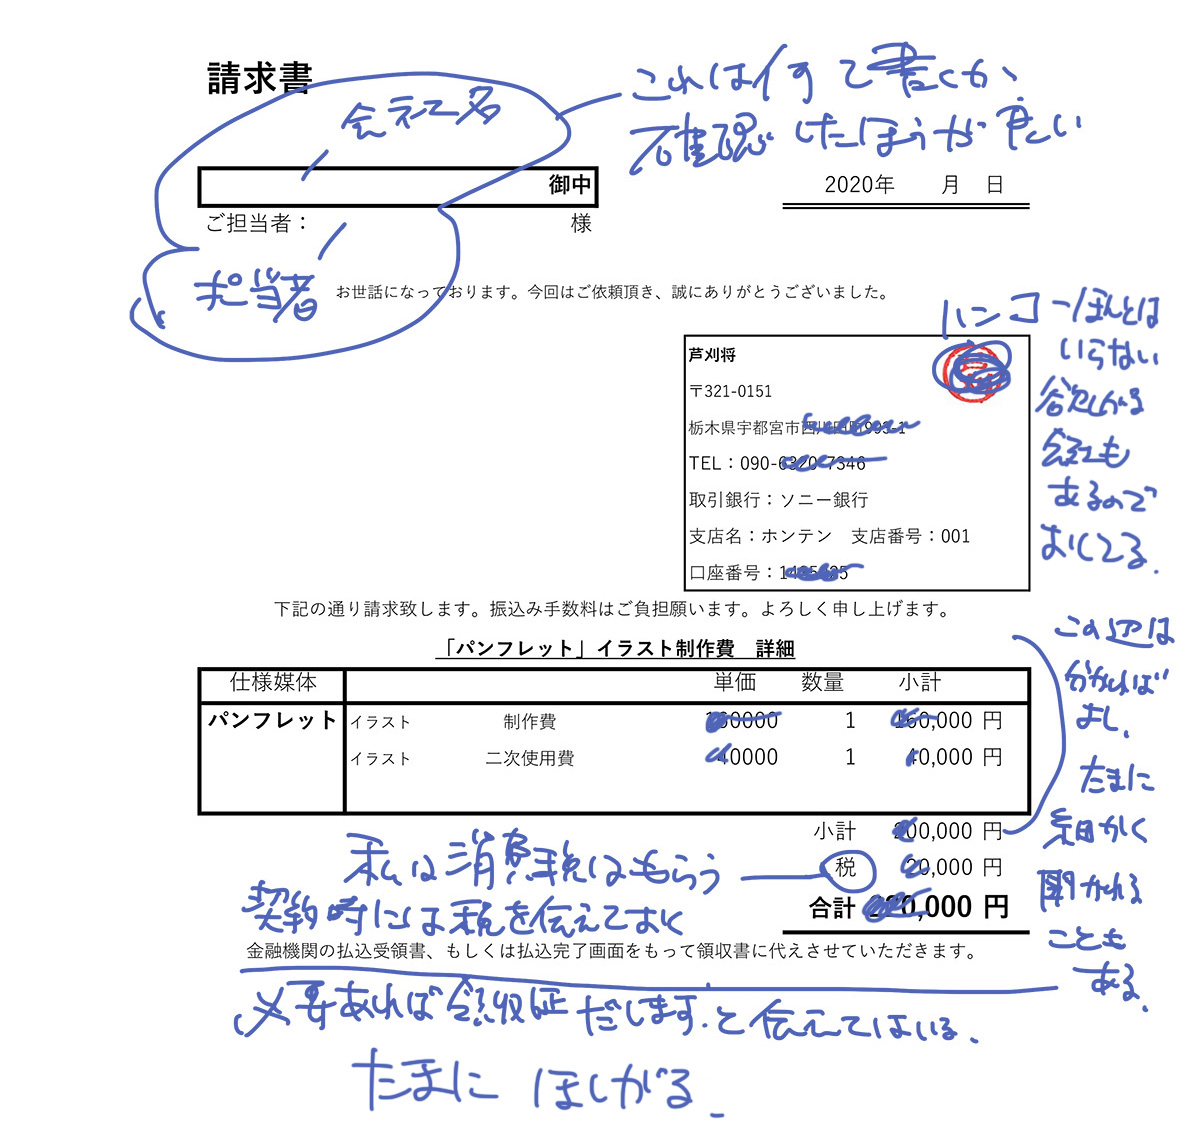 請求書
会社名
これは何て書くか、
確認したほうが正しい
御中
2020年 月 日
ご担当者： 様
担当者
お世話になっております。今回はご依頼頂き、誠にありがとうございました。
ハンコ→ほんとは
いらない
欲しがる
会社も
あるので
おしてる.
芦刈将
〒321-0151
栃木県宇都宮市
TEL：090-
取引銀行：ソニー銀行
支店名：ホンテン 支店番号：001
口座番号：
下記の通り請求致します。振込み手数料はご負担願います。よろしく申し上げます。
この辺は
分かれば
よし、
たまに
細かく
聞かれる
ことも
ある.
「パンフレット」イラスト制作費 詳細
仕様媒体 単価 数量 小計
パンフレット イラスト 制作費 1 160,000 円
イラスト 二次使用費 40000 1 40,000 円
小計 200,000 円
税 20,000 円
合計 220,000 円
私は消費税はもらう
契約時には税を伝えておく
金融機関の払込受領書、もしくは払込完了画面をもって領収書に代えさせていただきます。
必要あれば領収証だします.と伝えてはいる.
たまに ほしがる.